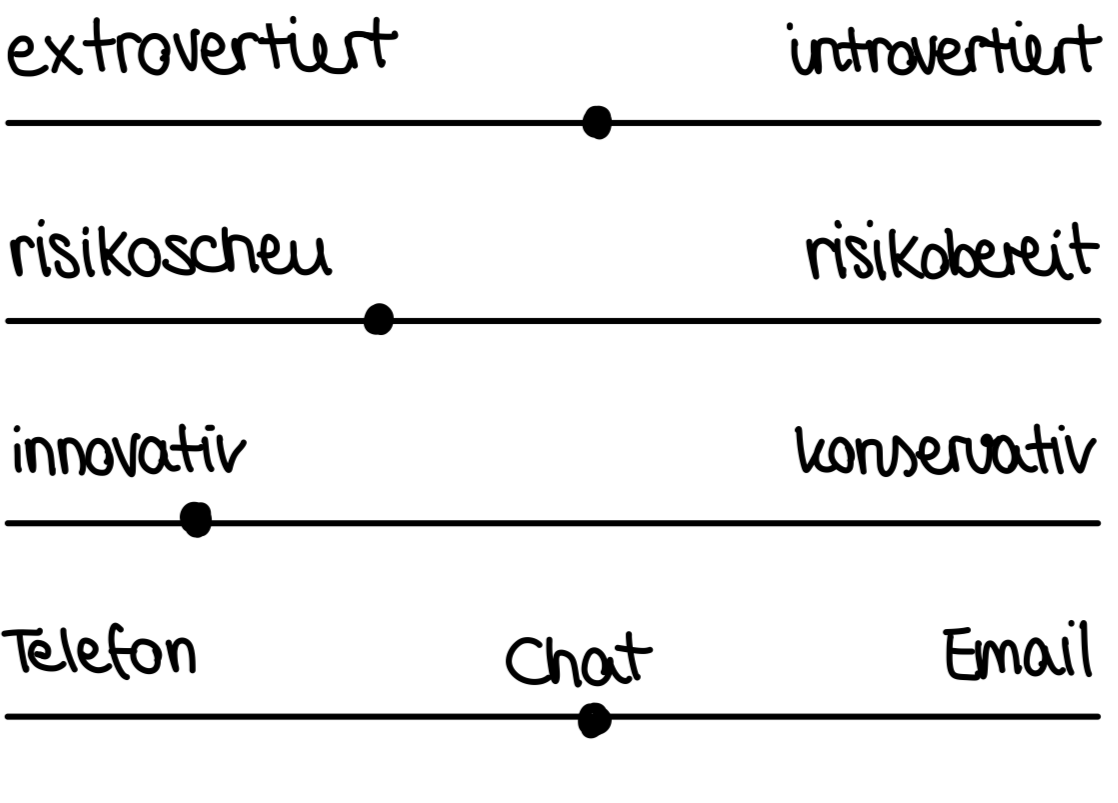 extrovertiert introvertiert
risikoscheu risikobereit
innovativ konservativ
Telefon Chat Email